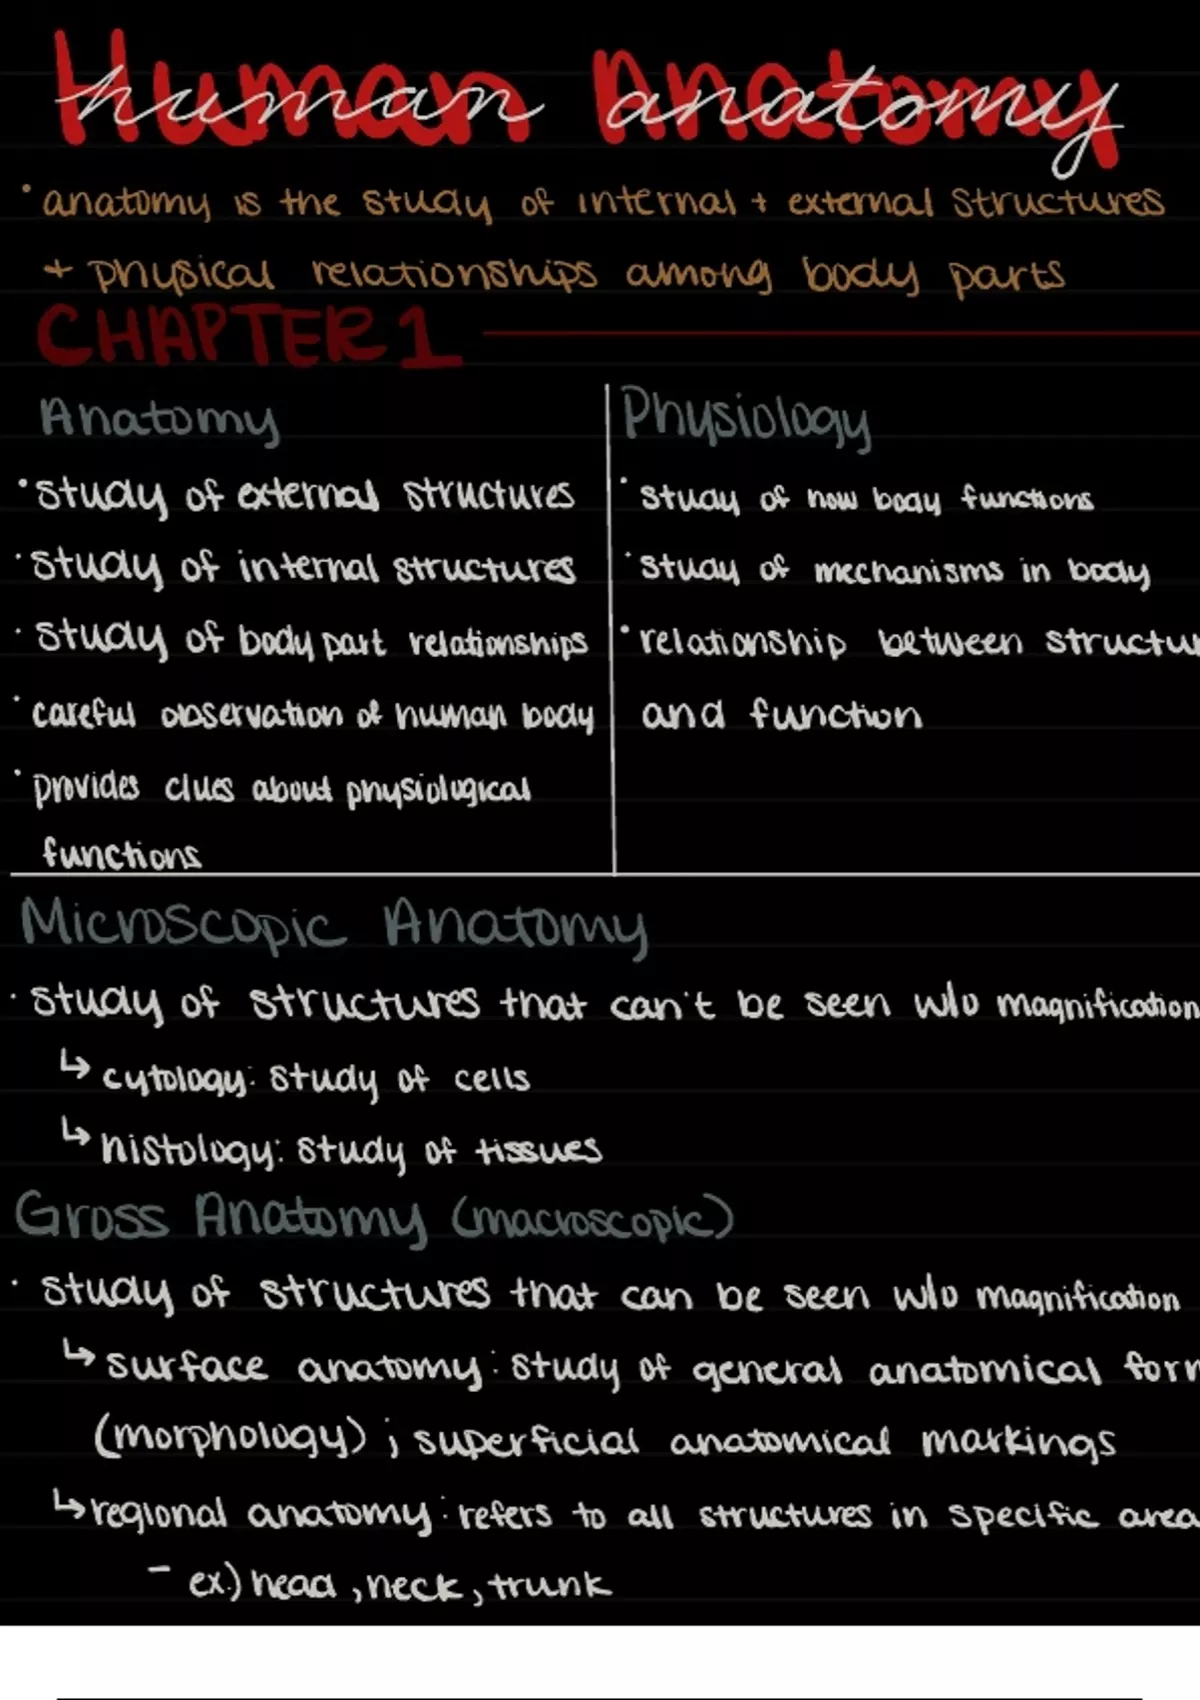 Human Anatomy
human anatomy
• anatomy is the study of internal + external structures
+ physical relationships among body parts
CHAPTER 1
Anatomy
• study of external structures
• study of internal structures
• study of body part relationships
• careful observation of human body
• provides clues about physiological
functions
Physiology
• study of how body functions
• study of mechanisms in body
• relationship between structu
and function
Microscopic Anatomy
• study of structures that can't be seen w/o magnification
↳ cytology: study of cells
↳ histology: study of tissues
Gross Anatomy (macroscopic)
• study of structures that can be seen w/o magnification
↳ surface anatomy: study of general anatomical form
(morphology) ; superficial anatomical markings
↳ regional anatomy: refers to all structures in specific area
- ex.) head, neck, trunk